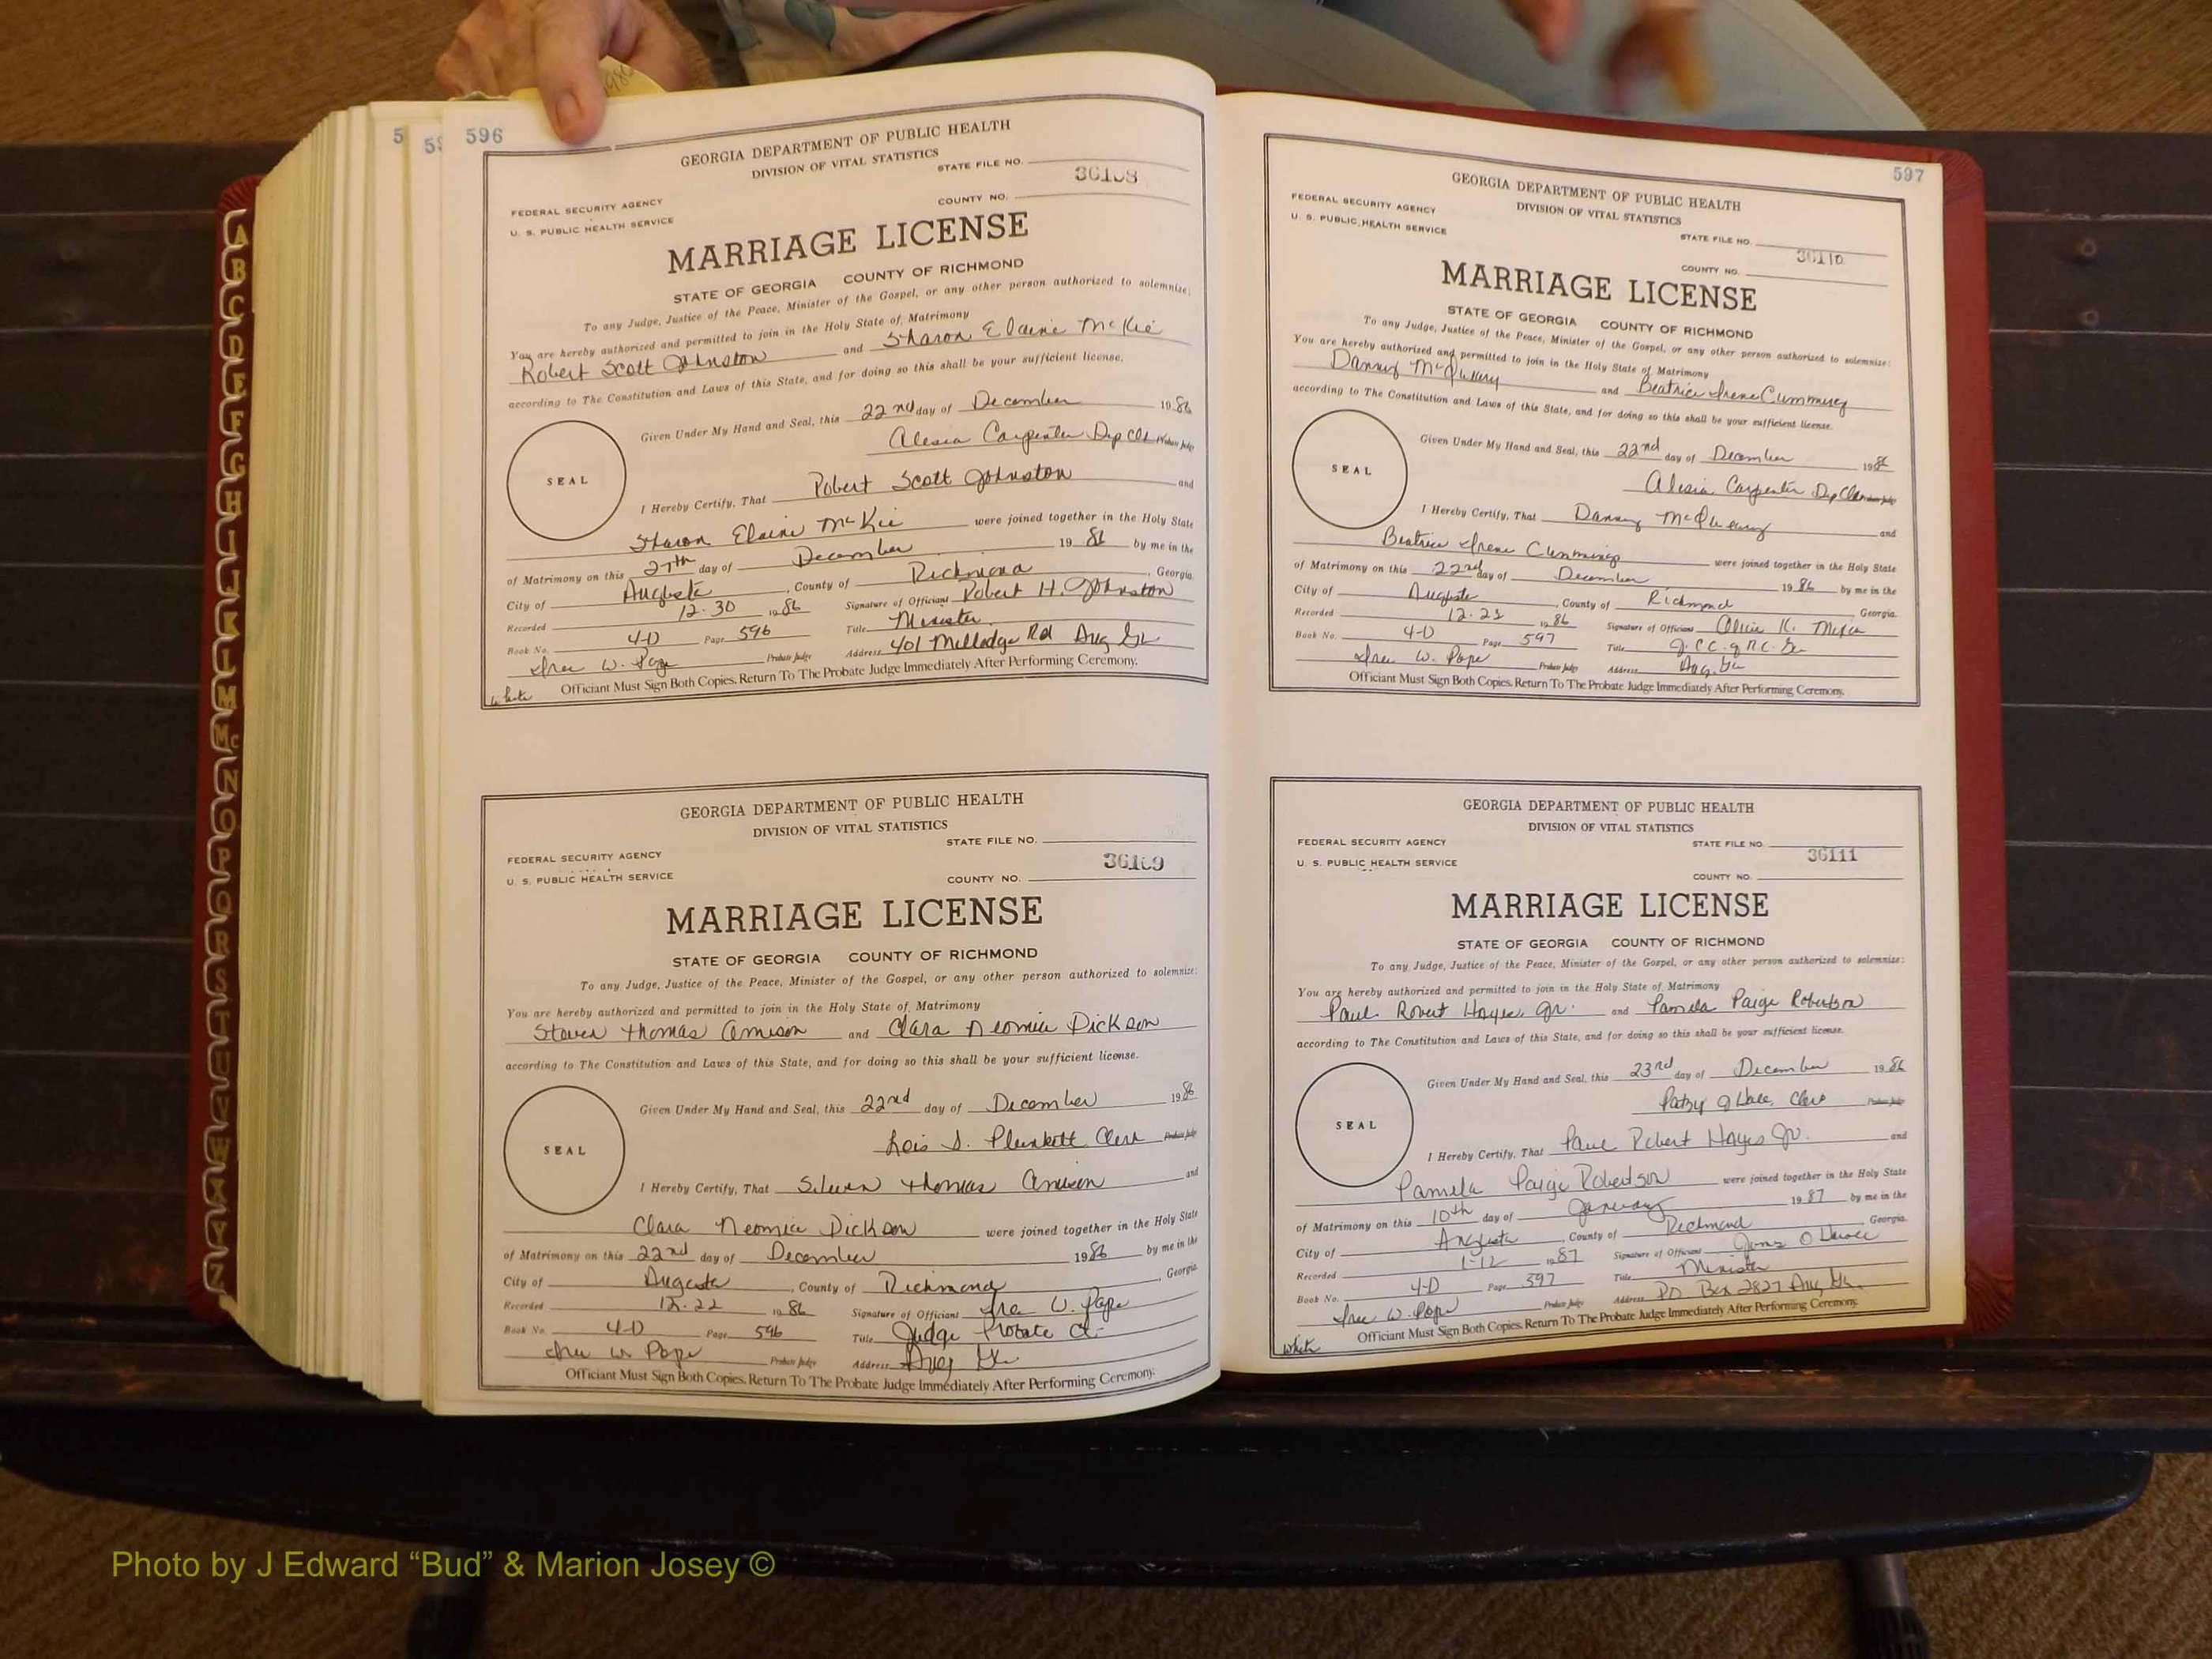 596
GEORGIA DEPARTMENT OF PUBLIC HEALTH
DIVISION OF VITAL STATISTICS
STATE FILE NO.
36108
FEDERAL SECURITY AGENCY
COUNTY NO.
U. S. PUBLIC HEALTH SERVICE
MARRIAGE LICENSE
STATE OF GEORGIA COUNTY OF RICHMOND
To any Judge, Justice of the Peace, Minister of the Gospel, or any other person authorized to solemnize:
You are hereby authorized and permitted to join in the Holy State of Matrimony
Robert Scott Johnston and Sharon Elaine McKie
according to The Constitution and Laws of this State, and for doing so this shall be your sufficient license.
Given Under My Hand and Seal, this 22nd day of December 1986
Alesia Carpenter Dep Clk Probate Judge
SEAL
I Hereby Certify, That Robert Scott Johnston and
Sharon Elaine McKie were joined together in the Holy State
of Matrimony on this 27th day of December 19 86 by me in the
City of Augusta, County of Richmond, Georgia.
Recorded 12-30 1986 Signature of Officiant Robert H. Johnston
Book No. 4-D Page 596 Title Minister
Ira W. Pope Probate Judge Address 401 Milledge Rd Aug Ga
Officiant Must Sign Both Copies. Return To The Probate Judge Immediately After Performing Ceremony.
White
GEORGIA DEPARTMENT OF PUBLIC HEALTH
DIVISION OF VITAL STATISTICS
STATE FILE NO.
FEDERAL SECURITY AGENCY
36109
U. S. PUBLIC HEALTH SERVICE
COUNTY NO.
MARRIAGE LICENSE
STATE OF GEORGIA COUNTY OF RICHMOND
To any Judge, Justice of the Peace, Minister of the Gospel, or any other person authorized to solemnize:
You are hereby authorized and permitted to join in the Holy State of Matrimony
Steven Thomas Amison and Clara Neomia Dickson
according to The Constitution and Laws of this State, and for doing so this shall be your sufficient license.
Given Under My Hand and Seal, this 22nd day of December 1986
Lois S. Plunkett Clerk Probate Judge
SEAL
I Hereby Certify, That Steven Thomas Amison and
Clara Neomia Dickson were joined together in the Holy State
of Matrimony on this 22nd day of December 1986 by me in the
City of Augusta, County of Richmond, Georgia.
Recorded 12-22 1986 Signature of Officiant Ira W. Pope
Book No. 4-D Page 596 Title Judge Probate Ct
Ira W Pope Probate Judge Address Aug Ga
Officiant Must Sign Both Copies. Return To The Probate Judge Immediately After Performing Ceremony.
597
GEORGIA DEPARTMENT OF PUBLIC HEALTH
DIVISION OF VITAL STATISTICS
FEDERAL SECURITY AGENCY
STATE FILE NO.
U. S. PUBLIC HEALTH SERVICE
36110
COUNTY NO.
MARRIAGE LICENSE
STATE OF GEORGIA COUNTY OF RICHMOND
To any Judge, Justice of the Peace, Minister of the Gospel, or any other person authorized to solemnize:
You are hereby authorized and permitted to join in the Holy State of Matrimony
Danny and Beatrice Irene Cummings
according to The Constitution and Laws of this State, and for doing so this shall be your sufficient license.
Given Under My Hand and Seal, this 22nd day of December 1986
Alesia Carpenter Dep Clk Probate Judge
SEAL
I Hereby Certify, That Danny and
Beatrice Irene Cummings were joined together in the Holy State
of Matrimony on this 22nd day of December 1986 by me in the
City of Augusta, County of Richmond Georgia.
Recorded 1986 Signature of Officiant
Book No. 4-D Page 597 Title
Ira W. Pope Probate Judge Address Aug. Ga
Officiant Must Sign Both Copies. Return To The Probate Judge Immediately After Performing Ceremony.
GEORGIA DEPARTMENT OF PUBLIC HEALTH
DIVISION OF VITAL STATISTICS
FEDERAL SECURITY AGENCY
STATE FILE NO.
U. S. PUBLIC HEALTH SERVICE
36111
COUNTY NO.
MARRIAGE LICENSE
STATE OF GEORGIA COUNTY OF RICHMOND
To any Judge, Justice of the Peace, Minister of the Gospel, or any other person authorized to solemnize:
You are hereby authorized and permitted to join in the Holy State of Matrimony
Paul Robert Hayes, Jr. and Pamela Paige Robertson
according to The Constitution and Laws of this State, and for doing so this shall be your sufficient license.
Given Under My Hand and Seal, this 23rd day of December 1986
Patsy Clerk Probate Judge
SEAL
I Hereby Certify, That Paul Robert Hayes Jr. and
Pamela Paige Robertson were joined together in the Holy State
of Matrimony on this 10th day of January 19 87 by me in the
City of Augusta, County of Richmond Georgia.
Recorded 1-12 1987 Signature of Officiant
Book No. 4-D Page 597 Title Minister
Ira W. Pope Probate Judge Address PO Box 2827 Aug Ga
Officiant Must Sign Both Copies. Return To The Probate Judge Immediately After Performing Ceremony.
White
A
B
C
D
E
F
G
H
I
J
K
L
M
Mc
N
O
P
Q
R
S
T
U
V
W
X
Y
Z
Photo by J Edward “Bud” & Marion Josey ©